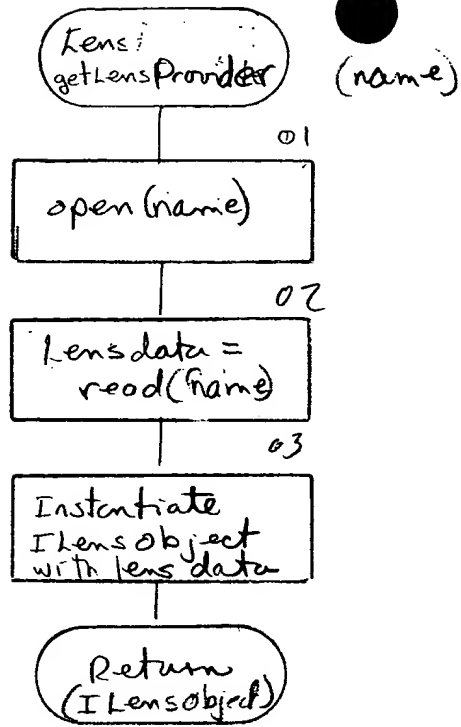 Lens:
getLensProvider (name)
01
open (name)
02
Lensdata =
read(name)
03
Instantiate
ILensObject
with lens data
Return
(ILensobject)